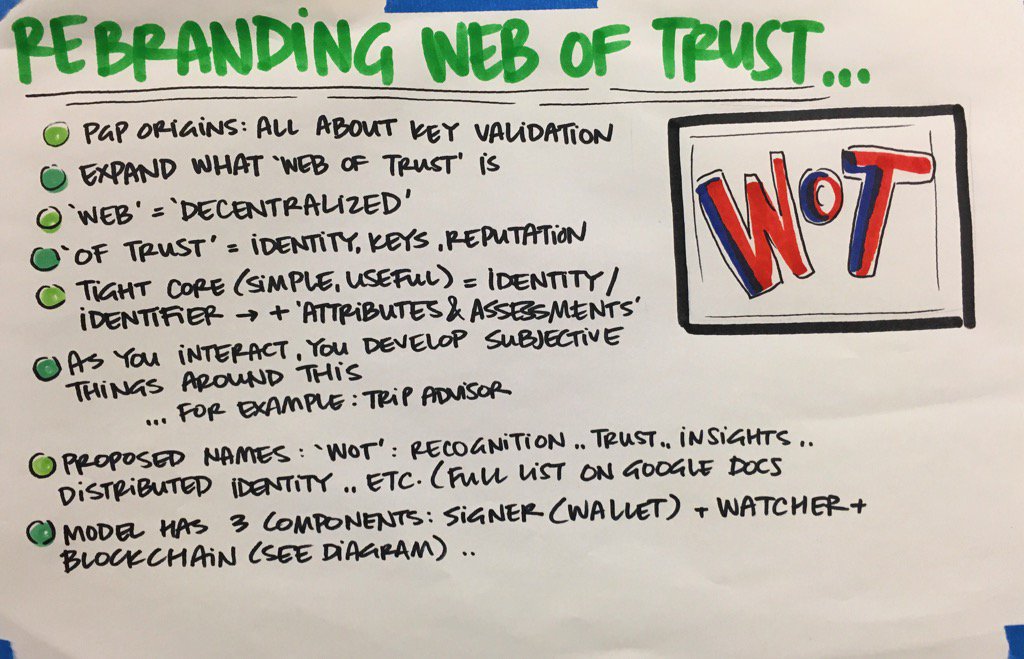 REBRANDING WEB OF TRUST...
PGP ORIGINS: ALL ABOUT KEY VALIDATION
EXPAND WHAT 'WEB OF TRUST' IS
'WEB' = 'DECENTRALIZED'
'OF TRUST' = IDENTITY, KEYS, REPUTATION
TIGHT CORE (SIMPLE, USEFUL) = IDENTITY/
IDENTIFIER → + 'ATTRIBUTES & ASSESSMENTS'
AS YOU INTERACT, YOU DEVELOP SUBJECTIVE
THINGS AROUND THIS
... FOR EXAMPLE: TRIP ADVISOR
PROPOSED NAMES: 'WOT': RECOGNITION.. TRUST.. INSIGHTS..
DISTRIBUTED IDENTITY.. ETC. (FULL LIST ON GOOGLE DOCS
MODEL HAS 3 COMPONENTS: SIGNER (WALLET) + WATCHER +
BLOCKCHAIN (SEE DIAGRAM)..
WOT